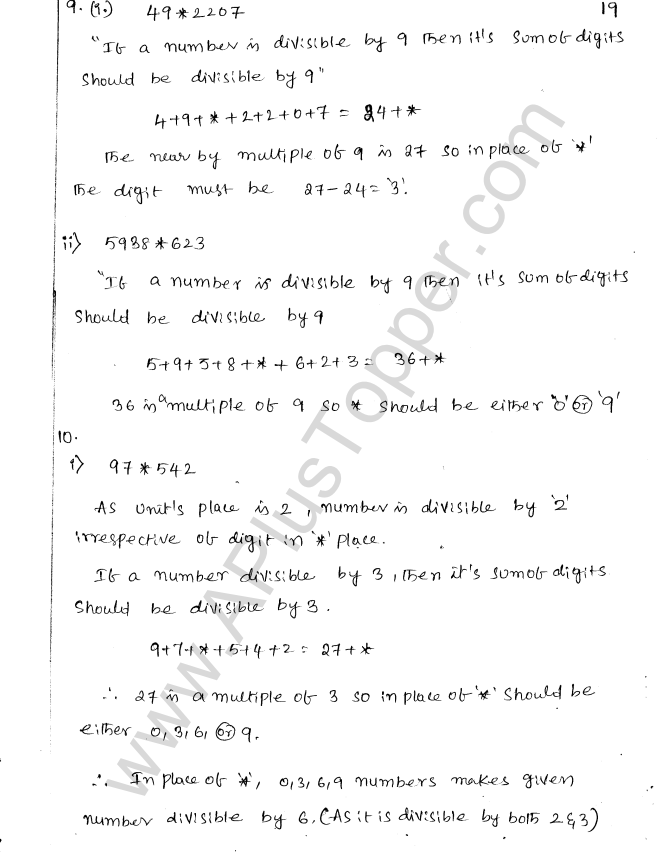 9. (i.) 49*2207 19
"If a number is divisible by 9 then it's sum of digits
should be divisible by 9"
4+9+*+2+2+0+7 = 24+*
The near by multiple of 9 is 27 so in place of '*'
the digit must be 27-24='3'.
ii) 5938*623
"If a number is divisible by 9 then it's sum of digits
should be divisible by 9
5+9+3+8+*+6+2+3= 36+*
36 is a multiple of 9 so * should be either '0' or '9'
10.
i) 97*542
As Unit's place is 2, number is divisible by '2'
irrespective of digit in '*' place.
If a number divisible by 3, then it's sum of digits
should be divisible by 3.
9+7+*+5+4+2= 27+*
∴ 27 is a multiple of 3 so in place of '*' should be
either 0,3,6, or 9.
∴ In place of '*', 0,3,6,9 numbers makes given
number divisible by 6. (As it is divisible by both 2 & 3)
www.APlusTopper.com